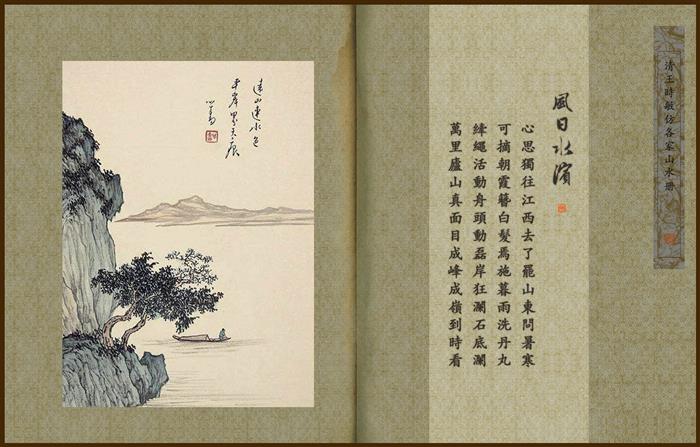 清王時敏仿各家山水册
風日水濱
心思獨往江西去了罷山東問暑寒
可摘朝霞簪白髮焉施暮雨洗丹丸
縴繩活動舟頭動磊岸狂瀾石底瀾
萬里廬山真面目成峰成嶺到時看
遠山連水色
平岸天痕
心畬